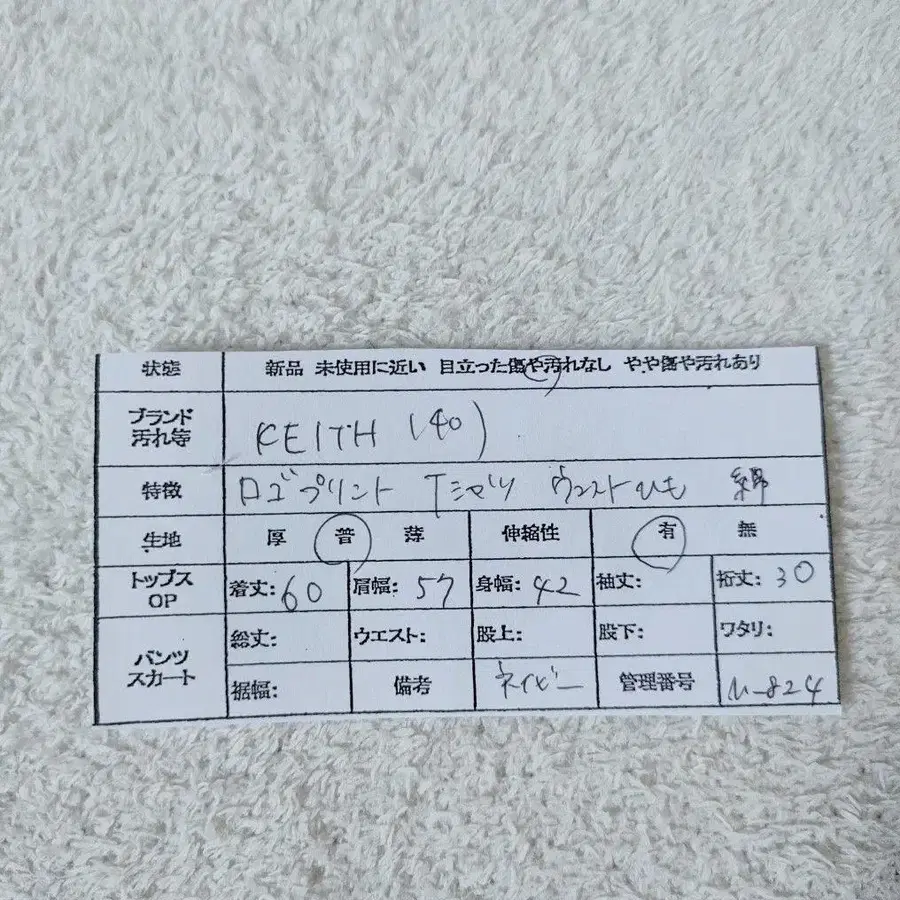 状態 新品 未使用に近い 目立った傷や汚れなし やや傷や汚れあり
ブランド
汚れ等 KEITH (40)
特徴 ロゴプリント Tシャツ ウエストひも 綿
生地 厚 普 薄 伸縮性 有 無
トップス
OP 着丈: 60 肩幅: 57 身幅: 42 袖丈: 裄丈: 30
パンツ
スカート 総丈: ウエスト: 股上: 股下: ワタリ:
裾幅: 備考 ネイビー 管理番号 U-824